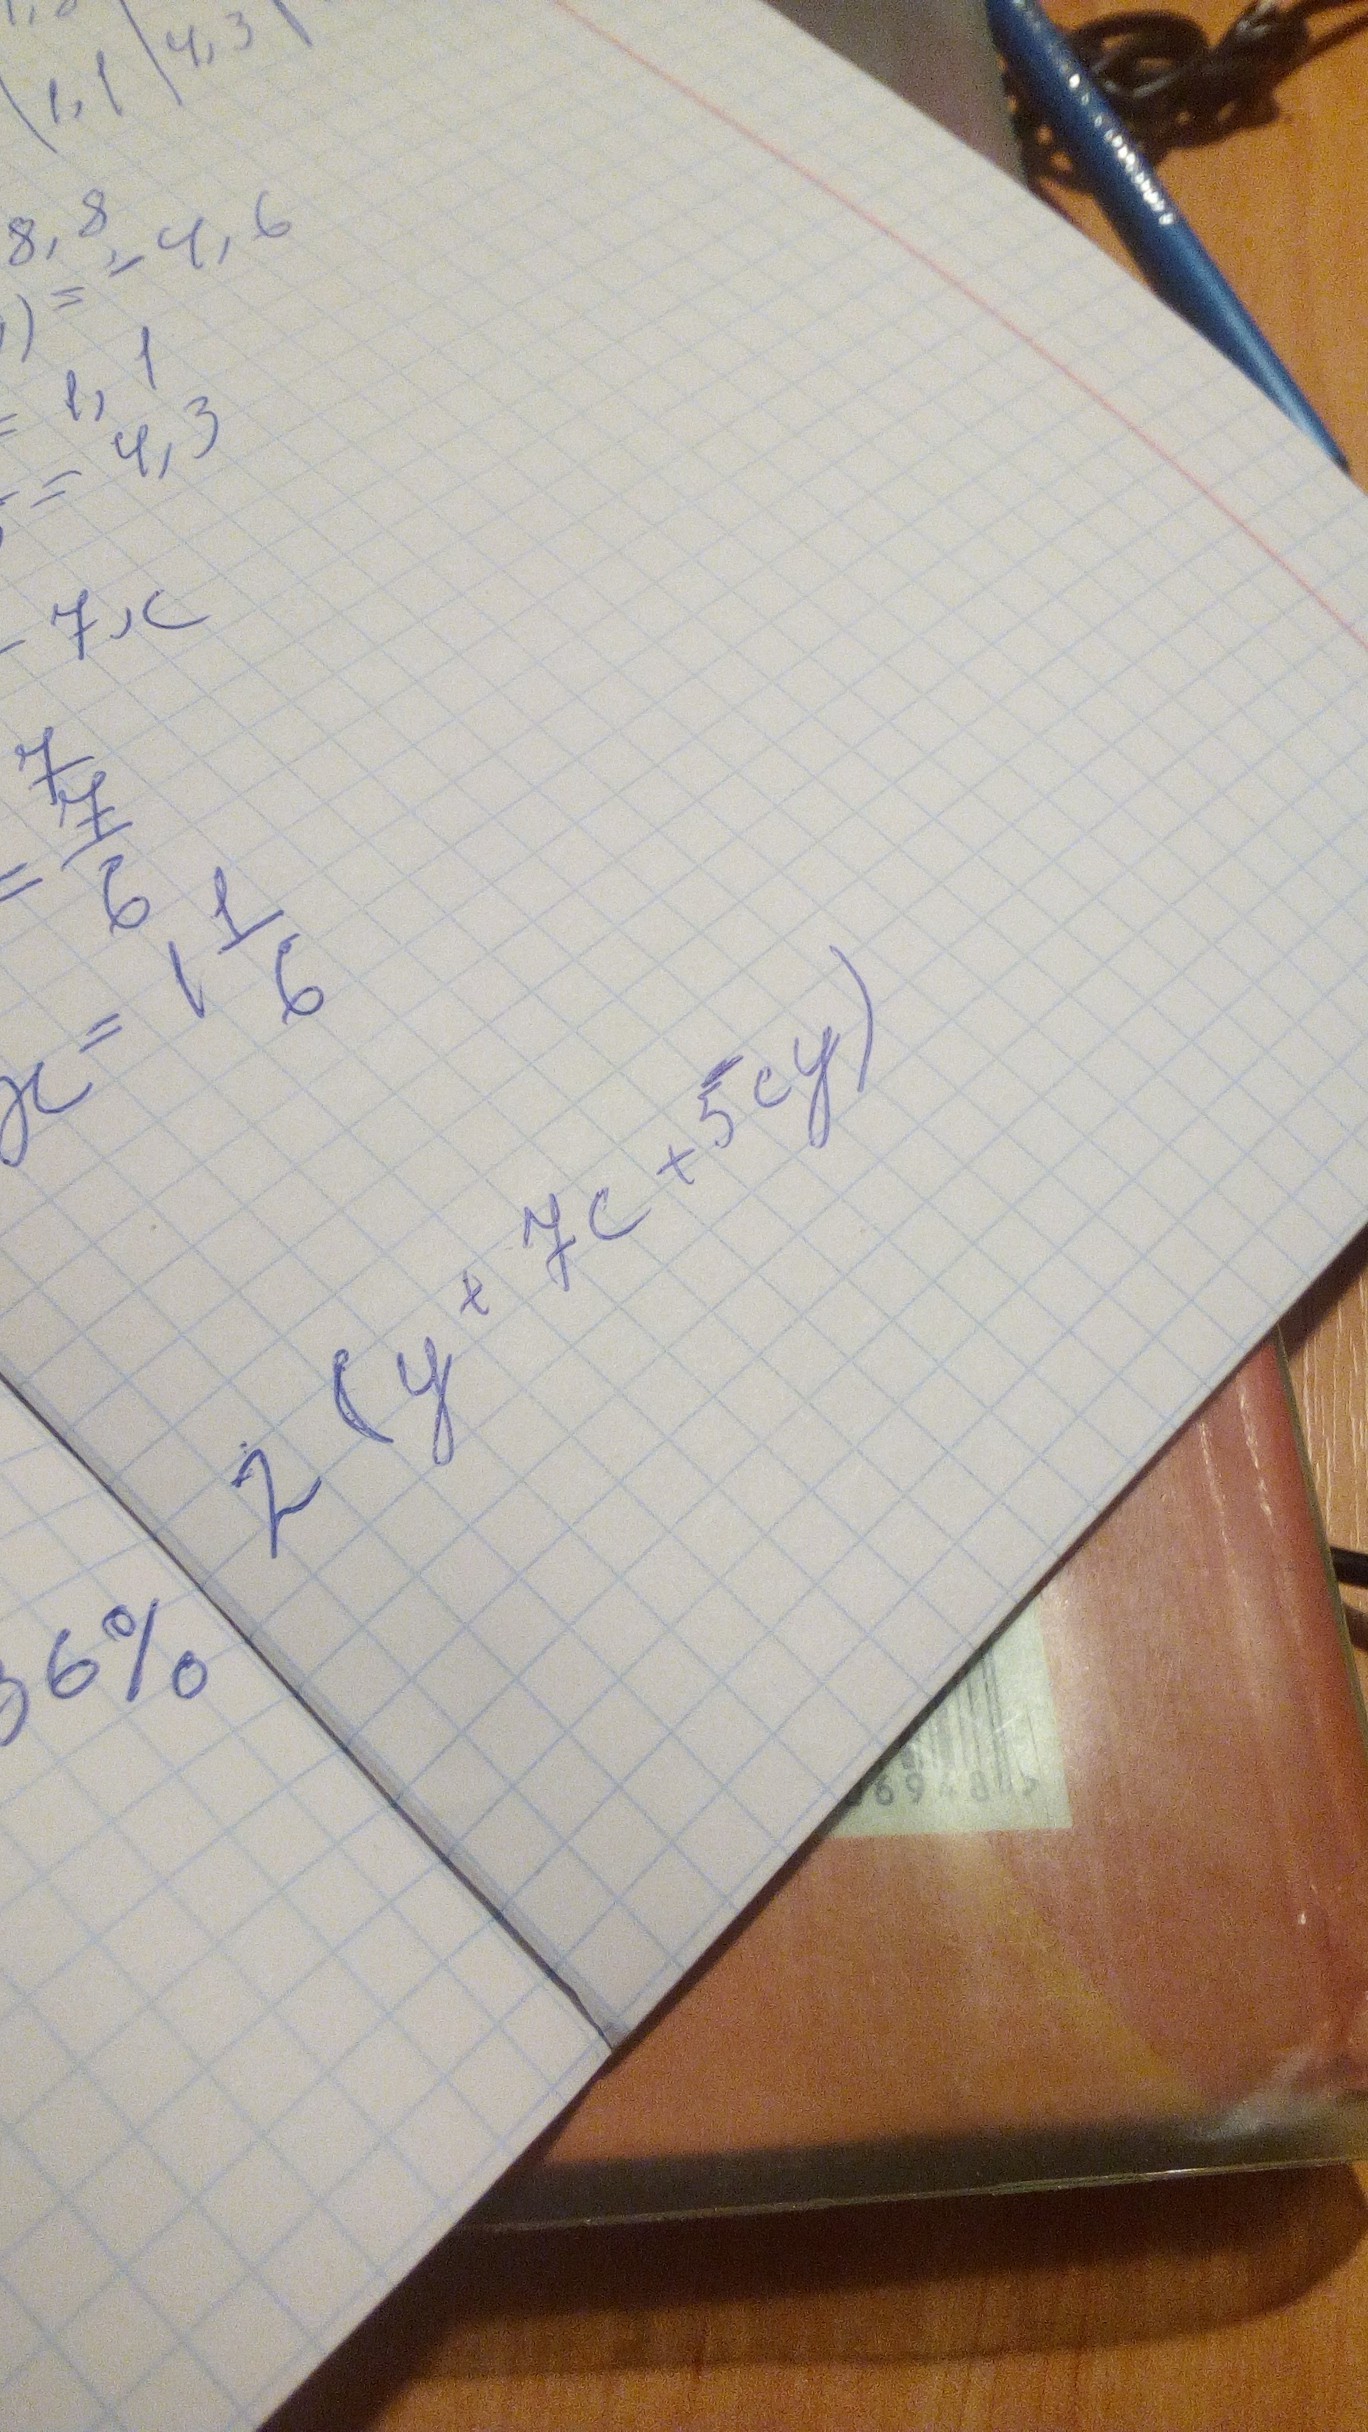 1,1 | 4,3
8,8
) = - 4,6
= 1,1
= 4,3
- 7,c
7
= 7/6
x = 1 1/6
2 (y + 7c + 5cy)
36%